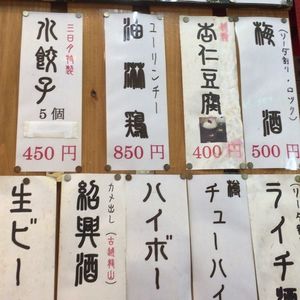 梅酒
(ソーダ割り・ロック)
500円
杏仁豆腐
400円
油淋鶏
ユーリンチー
850円
水餃子
三日夕特製
5個
450円
ライチ酒
チューハイ
ハイボー
紹興酒
カメ出し(古越龍山)
生ビー